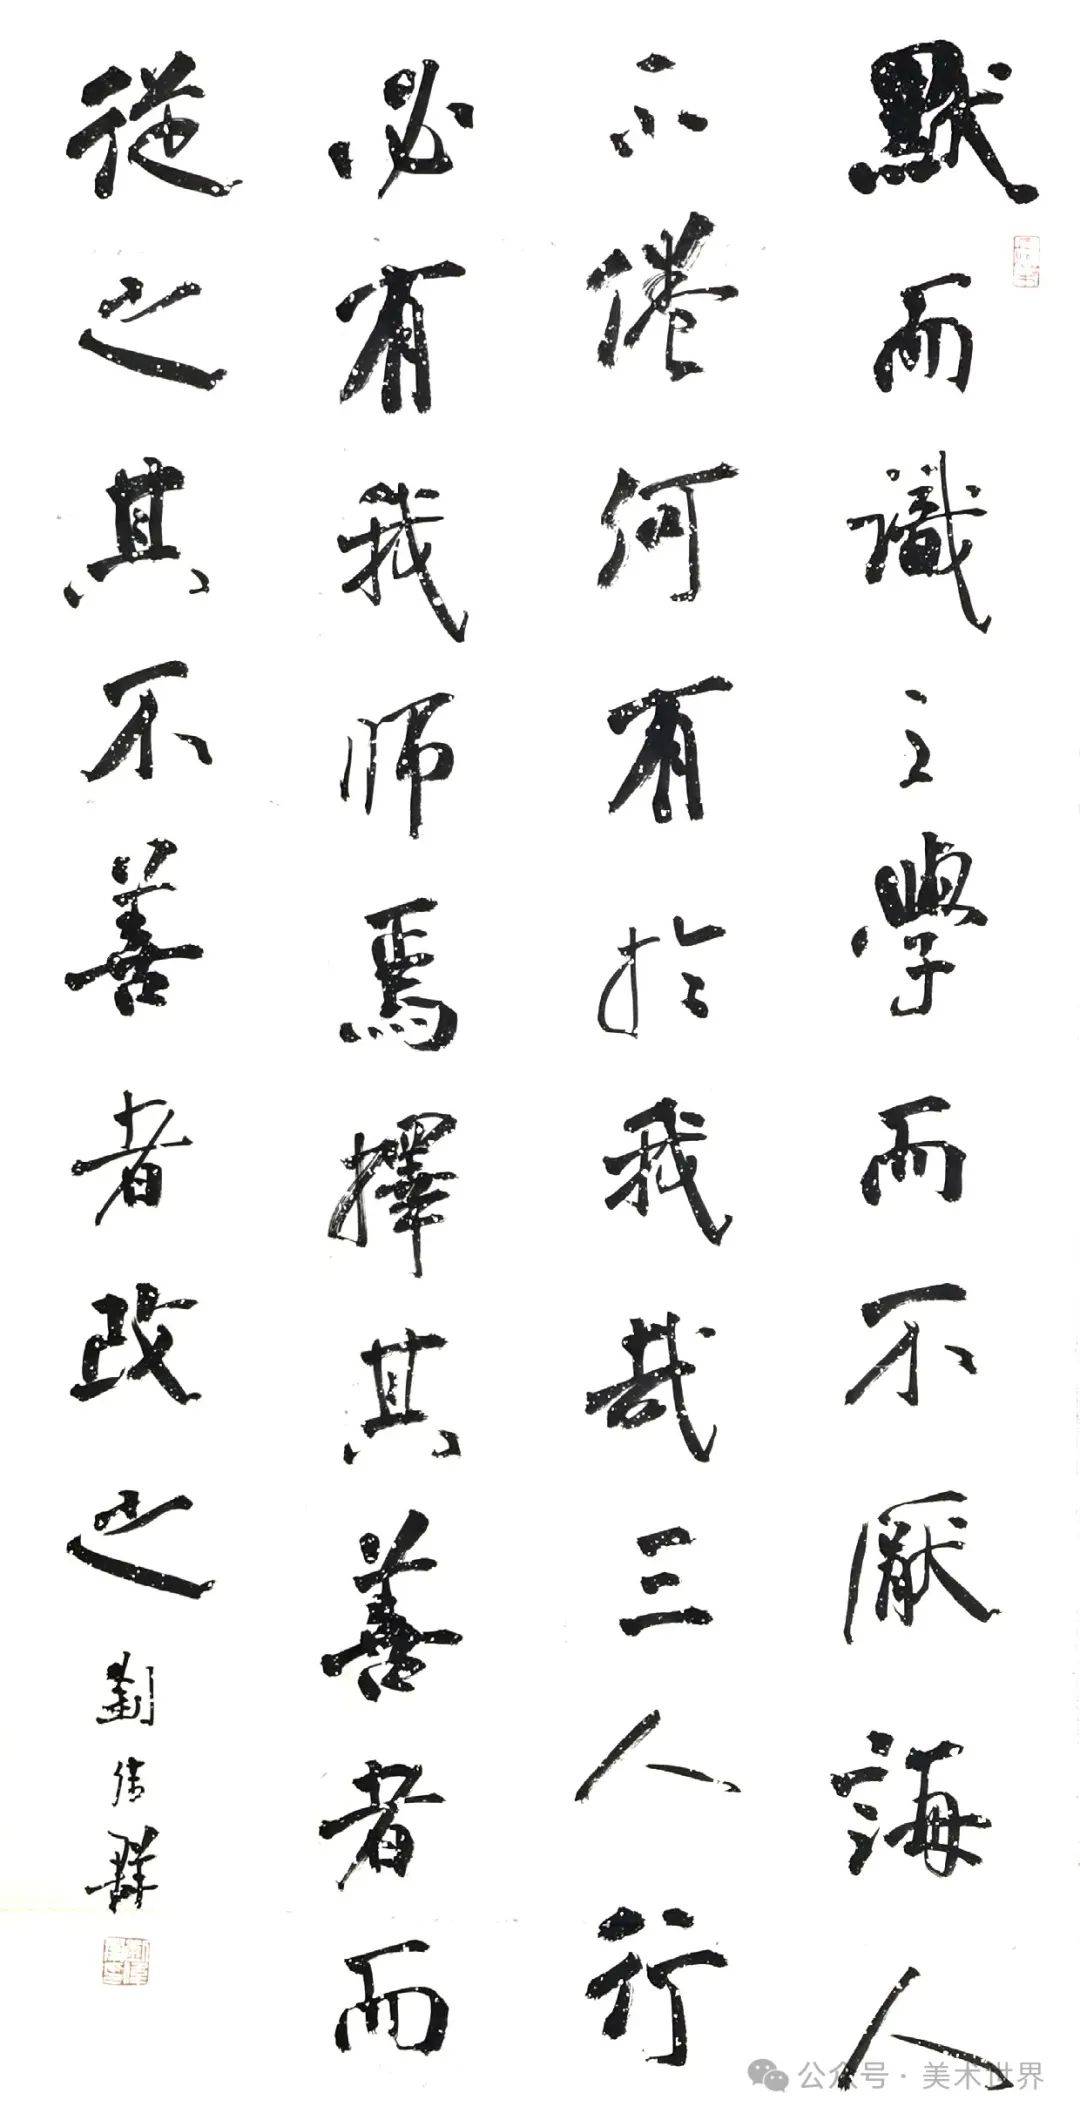 默而識之學而不厭誨人
不倦何有於我哉三人行
必有我師焉擇其善者而
從之其不善者改之
劉偉群
公众号·美术世界